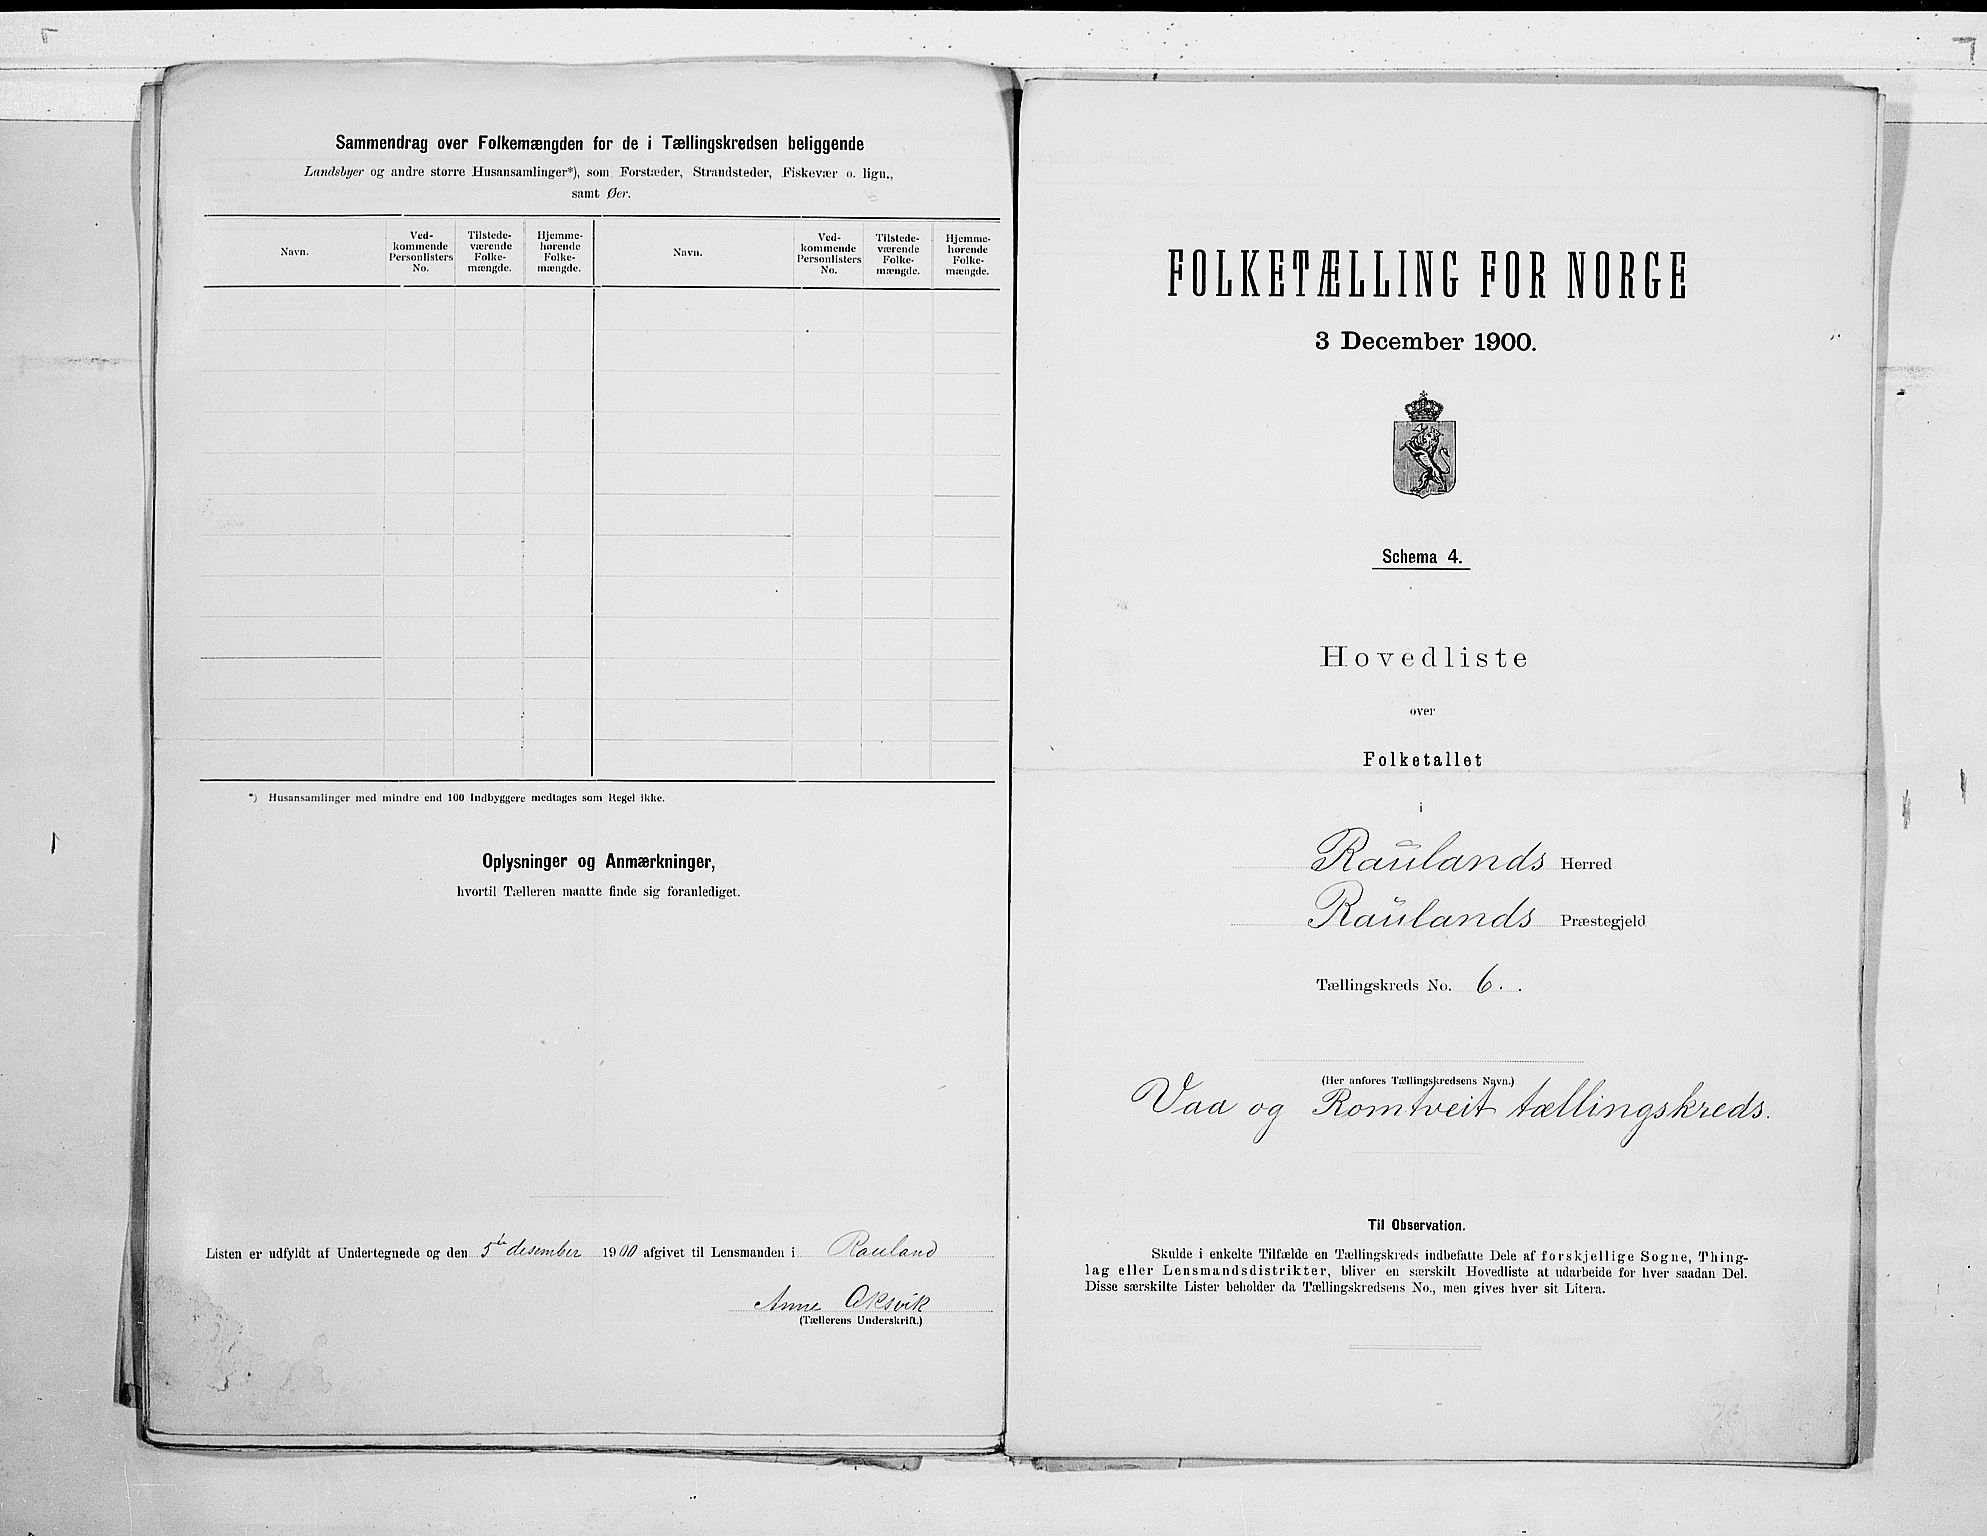 Sammendrag over Folkemængden for de i Tællingskredsen beliggende
Landsbyer og andre større Husansamlinger*), som Forstæder, Strandsteder, Fiskevær o. lign.,
samt Øer.
Navn.
Ved-
kommende
Personlisters
No.
Tilstede-
værende
Folke-
mængde.
Hjemme-
hørende
Folke-
mængde.
Navn.
Ved-
kommende
Personlisters
No.
Tilstede-
værende
Folke-
mængde.
Hjemme-
hørende
Folke-
mængde.
*) Husansamlinger med mindre end 100 Indbyggere medtages som Regel ikke.
Oplysninger og Anmærkninger,
hvortil Tælleren maatte finde sig foranlediget.
Listen er udfyldt af Undertegnede og den 5te desember 1900 afgivet til Lensmanden i Rauland
Anne Aksvik
(Tællerens Underskrift.)
FOLKETÆLLING FOR NORGE
3 December 1900.
Schema 4.
Hovedliste
over
Folketallet
i
Raulands Herred
Raulands Præstegjeld
Tællingskreds No. 6.
(Her anføres Tællingskredsens Navn.)
Vaa og Romtveit tællingskreds.
Til Observation.
Skulde i enkelte Tilfælde en Tællingskreds indbefatte Dele af forskjellige Sogne, Thing-
lag eller Lensmandsdistrikter, bliver en særskilt Hovedliste at udarbeide for hver saadan Del.
Disse særskilte Lister beholder da Tællingskredsens No., men gives hver sit Litera.